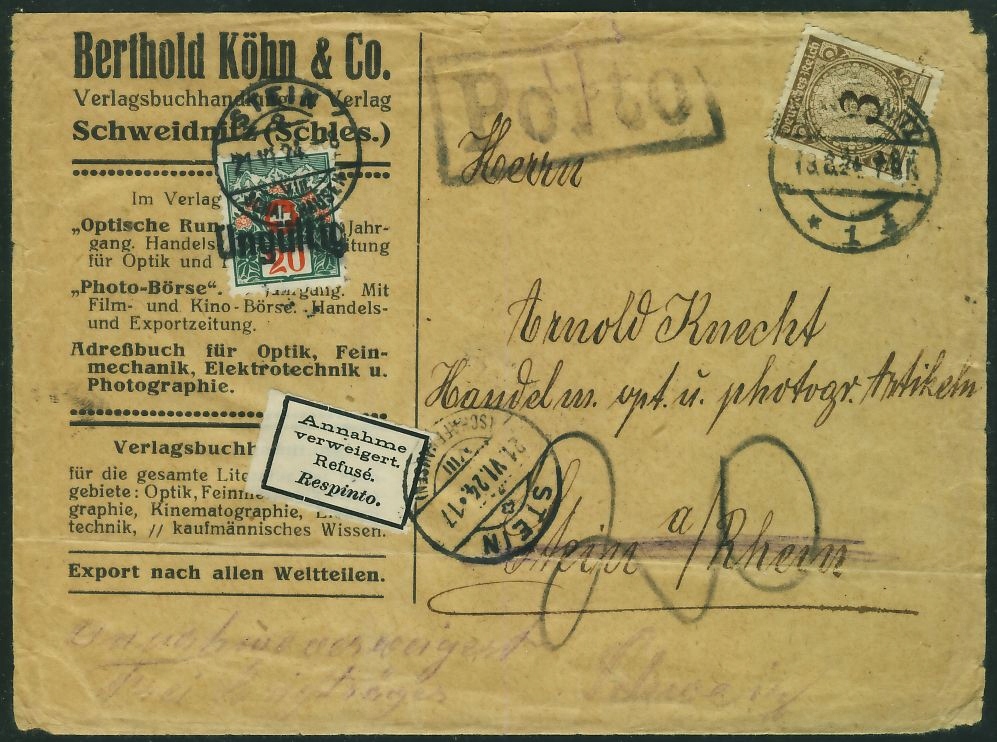 Berthold Köhn & Co.
Verlagsbuchhandlung Verlag
Schweidnitz (Schles.)
Im Verlag
„Optische Run Jahr-
gang. Handels itung
für Optik und
„Photo-Börse“. Jahrgang. Mit
Film- und Kino-Börse. Handels-
und Exportzeitung.
Adreßbuch für Optik, Fein-
mechanik, Elektrotechnik u.
Photographie.
Verlagsbuchh
für die gesamte Lite
gebiete: Optik, Feinme
graphie, Kinematographie, El
technik, // kaufmännisches Wissen.
Export nach allen Weltteilen.
STEIN
21.VI.24
Ungültig
20
Annahme
verweigert.
Refusé.
Respinto.
Porto
Deutsches Reich
3
13.6.24
* 1 1
Herrn
Arnold Knecht
Handel m. opt. u. photogr. Artikeln
Stein a/Rhein
(SCHAFFHAUSEN)
21.VI.24.17
VIII
STEIN
20
Annahme verweigert
Briefträger